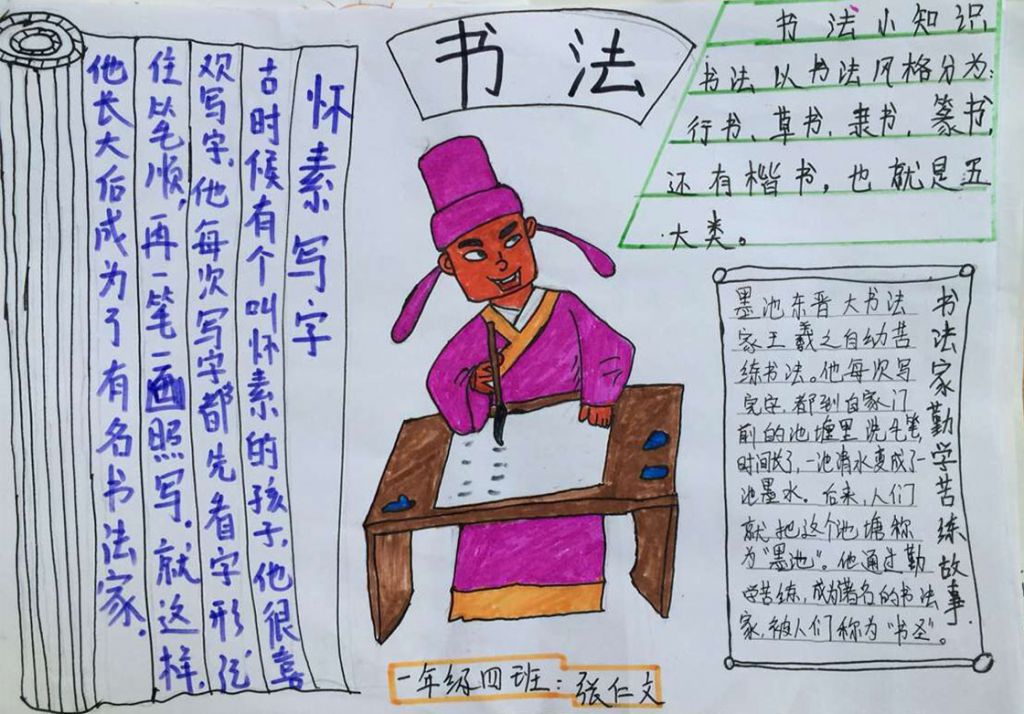 书法
怀素写字
古时候有个叫怀素的孩子,他很喜
欢写字,他每次写字都先看字形,记
住笔顺,再一笔一画照写,就这样,
他长大后成为了有名书法家.
书法小知识
书法以书法风格分为:
行书、草书、隶书、篆书,
还有楷书,也就是五
大类。
书法家勤学苦练故事.
墨池东晋大书法
家王羲之自幼苦
练书法。他每次写
完字,都到自家门
前的池塘里洗毛笔,
时间长了,一池清水变成了一
池墨水。后来,人们
就把这个池塘称
为“墨池”。他通过勤
学苦练,成为著名的书法
家,被人们称为“书圣”。
一年级四班:张仁文